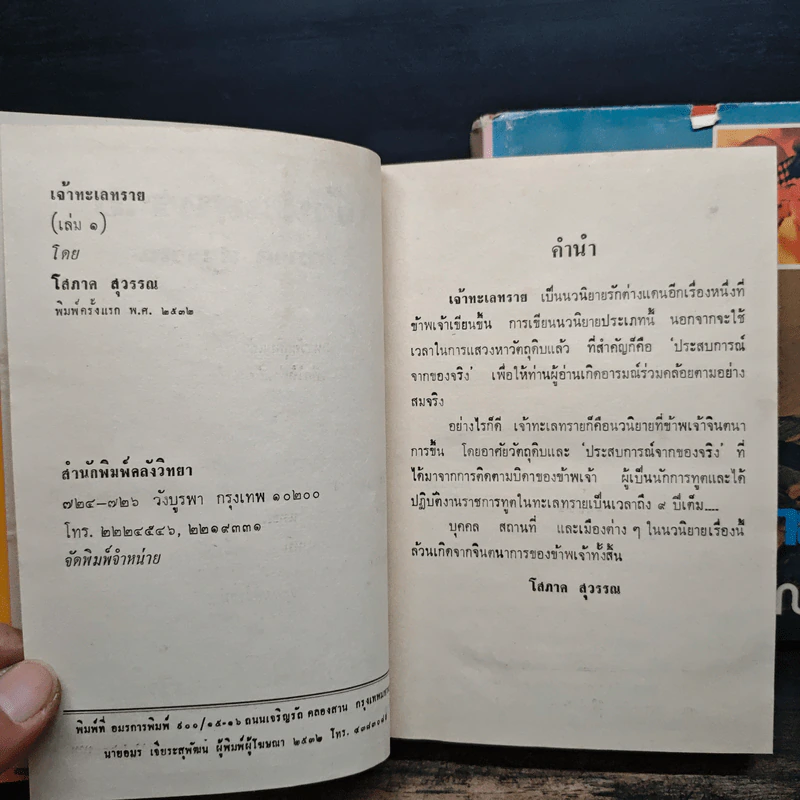 เจ้าทะเลทราย
(เล่ม ๑)
โดย
โสภาค สุวรรณ
พิมพ์ครั้งแรก พ.ศ. ๒๕๓๒
สำนักพิมพ์คลังวิทยา
๗๒๔–๗๒๖ วังบูรพา กรุงเทพ ๑๐๒๐๐
โทร. ๒๒๒๔๕๔๖, ๒๒๑๙๓๓๑
จัดพิมพ์จำหน่าย
พิมพ์ที่ อมรการพิมพ์ ๙๐๐/๑๕-๑๖ ถนนเจริญรัถ คลองสาน
นายอมร เจียระสุพัฒน์ ผู้พิมพ์ผู้โฆษณา ๒๕๓๒ โทร.
คำนำ
เจ้าทะเลทราย เป็นนวนิยายรักต่างแดนอีกเรื่องหนึ่งที่
ข้าพเจ้าเขียนขึ้น การเขียนนวนิยายประเภทนี้ นอกจากจะใช้
เวลาในการแสวงหาวัตถุดิบแล้ว ที่สำคัญก็คือ 'ประสบการณ์
จากของจริง' เพื่อให้ท่านผู้อ่านเกิดอารมณ์ร่วมคล้อยตามอย่าง
สมจริง
อย่างไรก็ดี เจ้าทะเลทรายก็คือนวนิยายที่ข้าพเจ้าจินตนา
การขึ้น โดยอาศัยวัตถุดิบและ 'ประสบการณ์จากของจริง' ที่
ได้มาจากการติดตามบิดาของข้าพเจ้า ผู้เป็นนักการทูตและได้
ปฏิบัติงานราชการทูตในทะเลทรายเป็นเวลาถึง ๙ ปีเต็ม....
บุคคล สถานที่ และเมืองต่าง ๆ ในนวนิยายเรื่องนี้
ล้วนเกิดจากจินตนาการของข้าพเจ้าทั้งสิ้น
โสภาค สุวรรณ